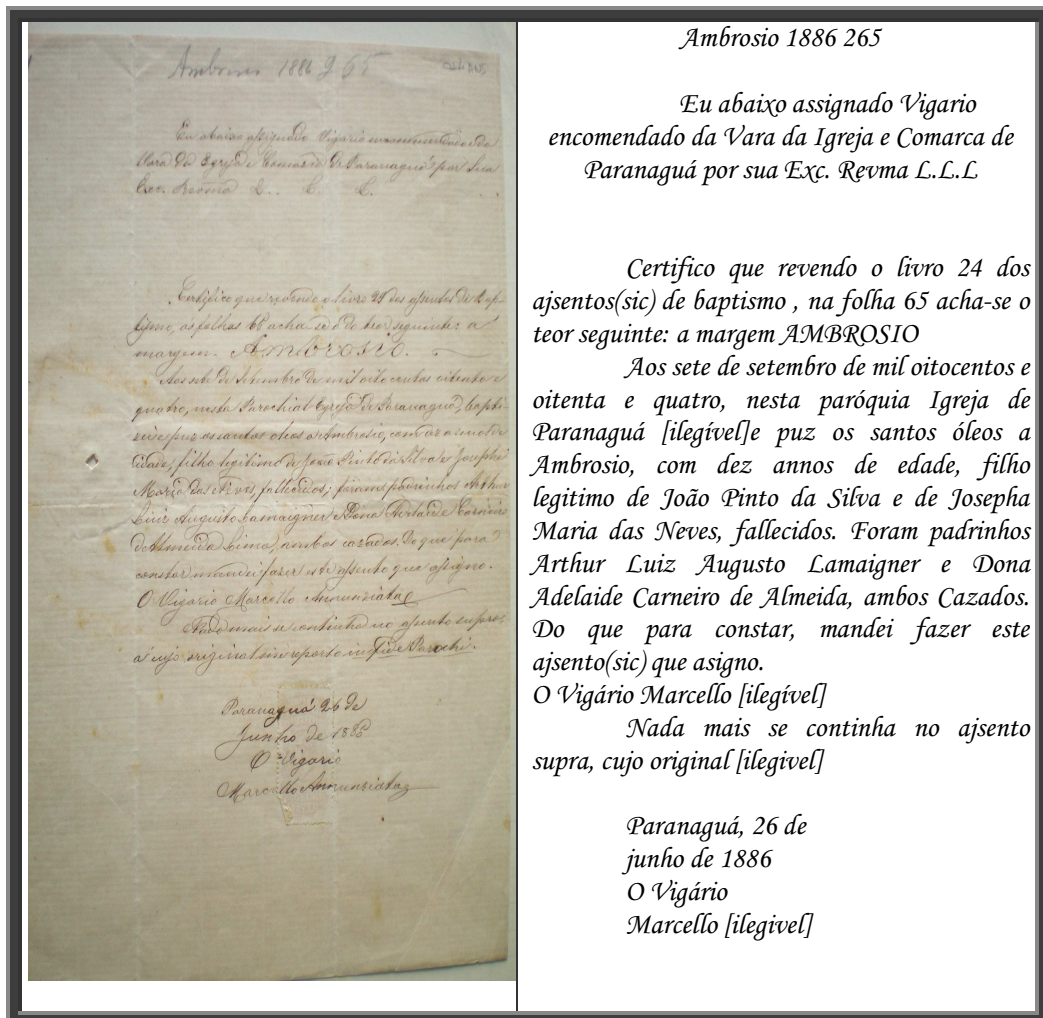 Ambrosio 1886 265
Eu abaixo assignado Vigario encommendado da
Vara da Igreja e Comarca de Paranaguá por Sua
Exc. Revma L. L. L.
Certifico que revendo o livro 24 dos assentos de Bap-
tismo, as folhas 65 acha-se o do teor seguinte: a
margem. AMBROSIO.
Aos sete de Setembro de mil oito centos oitenta e
quatro, nesta Parochial Igreja de Paranaguá, bapti-
zei e puz os santos oleos a Ambrosio, com dez annos de
idade, filho legitimo de João Pinto da Silva e Josepha
Maria das Neves, fallecidos; foram padrinhos Arthur
Luiz Augusto Lamaigner e Dona Carneiro
de Almeida Lima, ambos cazados. Do que para
constar mandei fazer este assento que assigno.
O Vigario Marcello Annunziata
Nada mais se continha no assento supra,
a cujo original me reporto in fide Parochi.
Paranaguá 26 de
Junho de 1886
O Vigario
Marcello Annunziata
Ambrosio 1886 265
Eu abaixo assignado Vigario
encomendado da Vara da Igreja e Comarca de
Paranaguá por sua Exc. Revma L.L.L
Certifico que revendo o livro 24 dos
ajsentos(sic) de baptismo , na folha 65 acha-se o
teor seguinte: a margem AMBROSIO
Aos sete de setembro de mil oitocentos e
oitenta e quatro, nesta paróquia Igreja de
Paranaguá [ilegível]e puz os santos óleos a
Ambrosio, com dez annos de edade, filho
legitimo de João Pinto da Silva e de Josepha
Maria das Neves, fallecidos. Foram padrinhos
Arthur Luiz Augusto Lamaigner e Dona
Adelaide Carneiro de Almeida, ambos Cazados.
Do que para constar, mandei fazer este
ajsento(sic) que asigno.
O Vigário Marcello [ilegível]
Nada mais se continha no ajsento
supra, cujo original [ilegivel]
Paranaguá, 26 de
junho de 1886
O Vigário
Marcello [ilegivel]